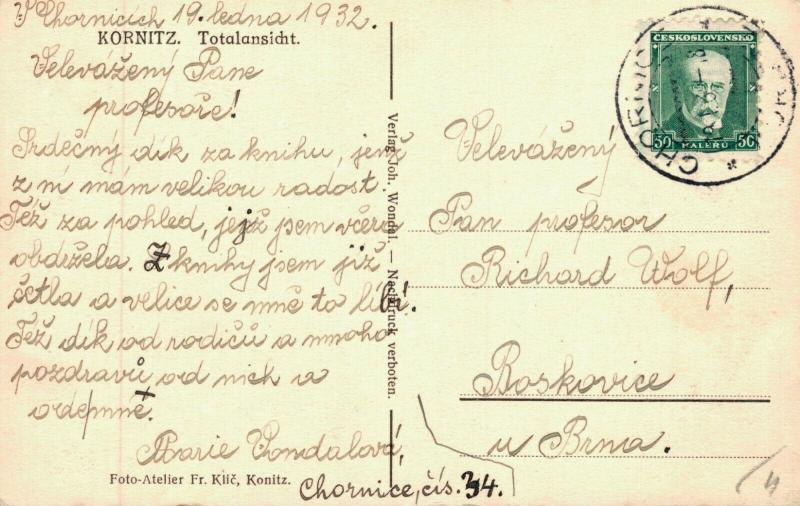 V Chornicích 19. ledna 1932.
KORNITZ. Totalansicht.
Velevážený Pane
profesoře!
Srdečný dík za knihu, jenž
z ní mám velikou radost.
Též za pohled, jejž jsem včera
obdržela. Z knihy jsem již
četla a velice se mně to líbí.
Též dík od rodičů a mnoho
pozdravů od nich a
odemně.
Marie Vondalová,
Chornice, čís. 34.
Foto-Atelier Fr. Klič, Konitz.
Verlag Joh. Wondal. — Nachdruck verboten.
ČESKOSLOVENSKO
50 HALÉŘŮ 50
CHORNICE
Velevážený
Pan profesor
Richard Wolf,
Boskovice
u Brna.